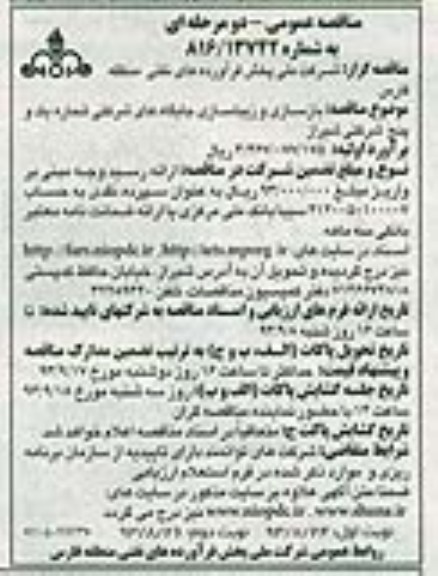 مناقصه عمومی - دو مرحله ای
به شماره ۸۱۶/۱۳۷۲۲
مناقصه گزار: شرکت ملی پخش فرآورده های نفتی منطقه
فارس
موضوع مناقصه: بازسازی و زیباسازی جایگاه های شرکتی شماره یک و
پنج شرکتی شیراز
برآورد اولیه: ریال
نوع و مبلغ تضمین شرکت در مناقصه: ارائه رسید وجه مبنی بر
واریز مبلغ ۹۳/۰۰۰/۰۰۰ ریال به عنوان سپرده نقدی به حساب
سیبا بانک ملی مرکزی یا ارائه ضمانت نامه معتبر
بانکی سه ماهه
اسناد در سایت های http://iets.mporg.ir , http://fars.niopdc.ir
نیز درج گردیده و تحویل آن به آدرس شیراز خیابان حافظ
دفتر کمیسیون مناقصات تلفن
تاریخ ارائه فرم های ارزیابی و اسناد مناقصه به شرکتهای تایید شده: تا
ساعت ۱۶ روز شنبه
تاریخ تحویل پاکات (الف، ب و ج) به ترتیب تضمین مدارک مناقصه
و پیشنهاد قیمت: حداکثر تا ساعت ۱۶ روز دوشنبه مورخ ۹۳/۹/۱۷
تاریخ جلسه گشایش پاکات (الف و ب): روز سه شنبه مورخ ۹۳/۹/۱۸
ساعت با حضور نماینده مناقصه گران
تاریخ گشایش پاکت ج: متعاقبا در اسناد مناقصه اعلام خواهد شد
شرایط متقاضی: شرکت های توانمند دارای تاییدیه از سازمان برنامه
ریزی و موارد ذکر شده در فرم استعلام ارزیابی
ضمنا متن آگهی علاوه بر سایت مذکور در سایت های:
www.shana.ir , www.niopdc.ir نیز درج می گردد
نوبت اول: نوبت دوم:
روابط عمومی شرکت ملی پخش فرآورده های نفتی منطقه فارس